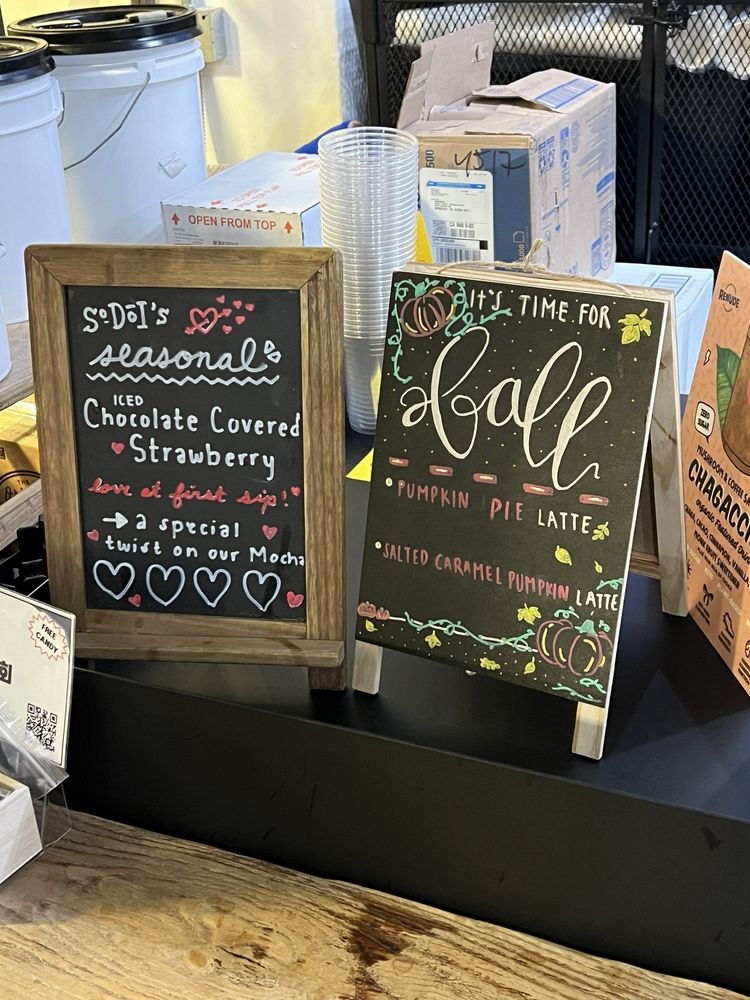 SODOI's
seasonal
ICED
Chocolate Covered
Strawberry
love at first sip!
→ a special
twist on our Mocha
IT'S TIME FOR
Fall
• PUMPKIN PIE LATTE
• SALTED CARAMEL PUMPKIN LATTE
OPEN FROM TOP
4517
FREE
CANDY
RENUDE
ZERO
SUGAR
MUSHROOM & COFFEE
CHAGACC